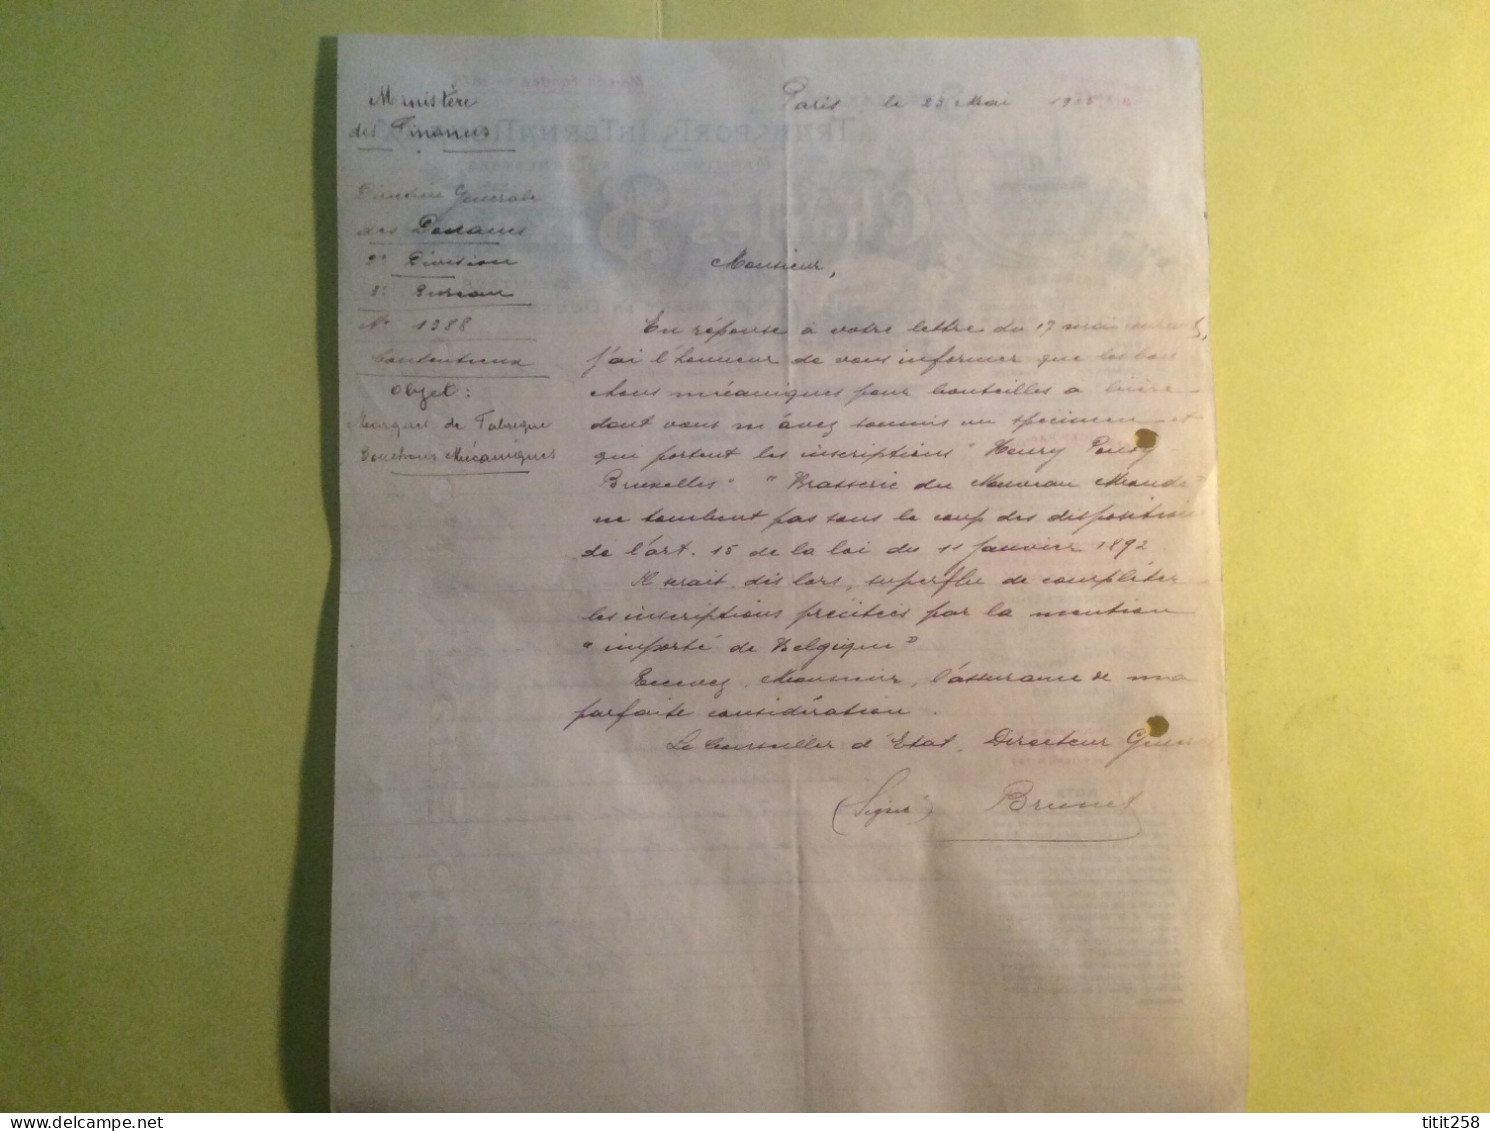 Paris, le 23 Mai 1905
Ministère
des Finances
Direction Générale
des Douanes
2e Division
3e Bureau
No 1388
Contentieux
Objet :
Marques de Fabrique
Bouchons Mécaniques
Monsieur,
En réponse à votre lettre du 17 mai
j'ai l'honneur de vous informer que les bou
chons mécaniques pour bouteilles a bière
dont vous m'avez soumis un specimen et
qui portent les inscriptions " Henry
Bruxelles " " Brasserie du Nouveau Monde "
ne tombent pas sous le coup des dispositions
de l'art. 15 de la loi du 11 Janvier 1892
Il serait, dès lors, superflu de compléter
les inscriptions précitées par la mention
" importé de Belgique "
Recevez, Monsieur, l'assurance de ma
parfaite considération.
Le Conseiller d'Etat, Directeur Général
(Signé) Brunet
titit258